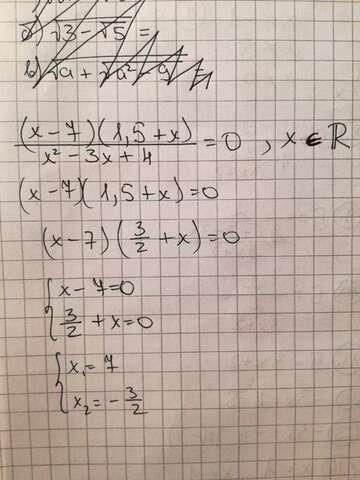 a) √3 - √5 =
b) √a + √a² - 9 = 1
(x-7)(1,5+x)
/ x² - 3x + 4 = 0 , x ∈ ℝ
(x-7)(1,5+x)=0
(x-7)(3/2 + x)=0
{ x-7=0
3/2 + x=0
{ x₁= 7
x₂= -3/2